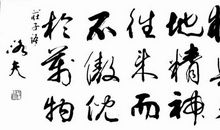 地精神
往来而
不傲倪
於萬物
莊子語
洛夫